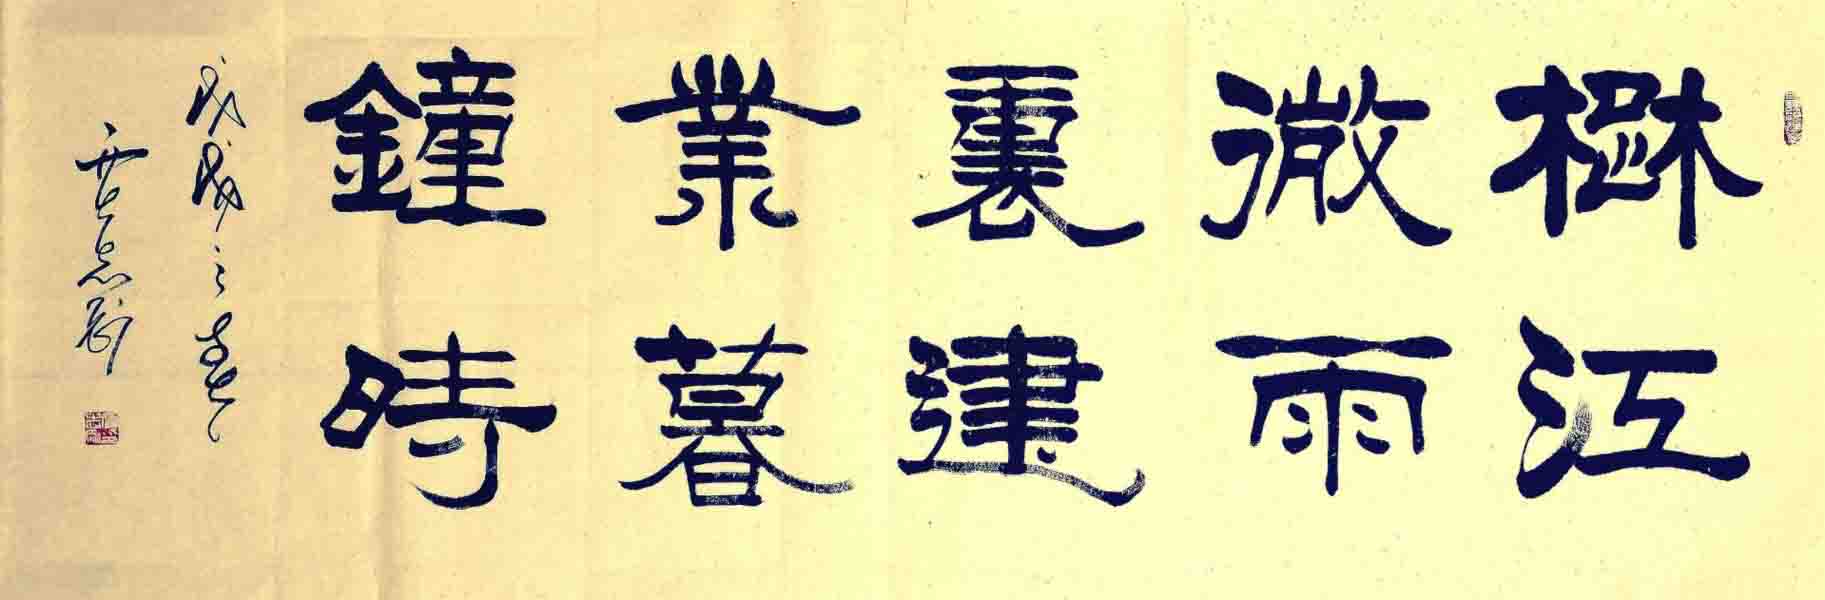 楚江
微雨
裏建
業暮
鐘時
戊戌之春